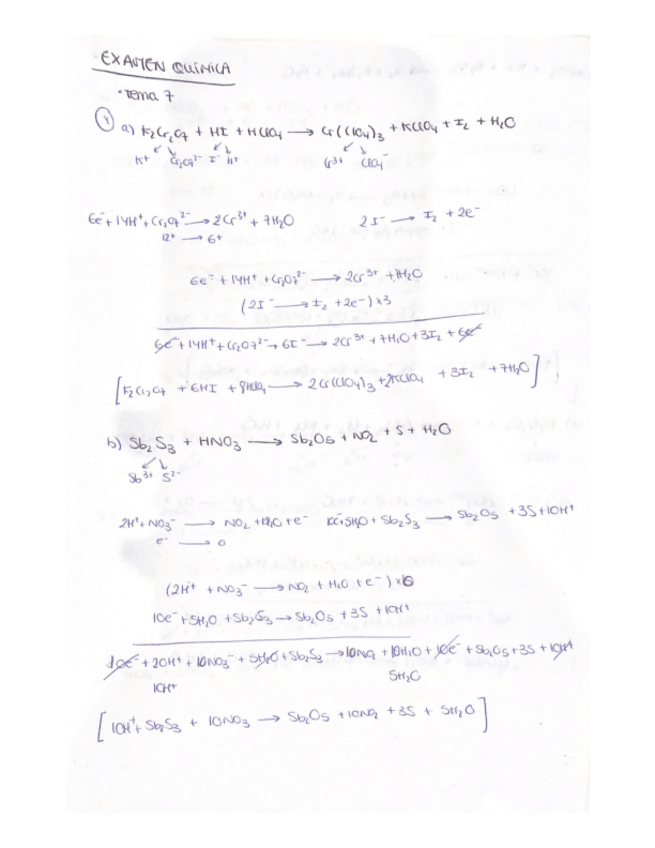 EXAMEN QUÍMICA
· Tema 7
① a) K₂Cr₂O₇ + HI + HClO₄ → Cr(ClO₄)₃ + KClO₄ + I₂ + H₂O
K⁺ Cr₂O₇²⁻ I⁻ H⁺ Cr³⁺ ClO₄⁻
6e⁻ + 14H⁺ + Cr₂O₇²⁻ → 2Cr³⁺ + 7H₂O 2I⁻ → I₂ + 2e⁻
12⁺ → 6⁺
6e⁻ + 14H⁺ + Cr₂O₇²⁻ → 2Cr³⁺ + 7H₂O
(2I⁻ → I₂ + 2e⁻) x3
6e⁻ + 14H⁺ + Cr₂O₇²⁻ + 6I⁻ → 2Cr³⁺ + 7H₂O + 3I₂ + 6e⁻
[K₂Cr₂O₇ + 6HI + 8HClO₄ → 2Cr(ClO₄)₃ + 2KClO₄ + 3I₂ + 7H₂O]
b) Sb₂S₃ + HNO₃ → Sb₂O₅ + NO₂ + S + H₂O
Sb³⁺ S²⁻
2H⁺ + NO₃⁻ → NO₂ + H₂O + e⁻ 10e⁻ + 5H₂O + Sb₂S₃ → Sb₂O₅ + 3S + 10H⁺
e⁻ → 0
(2H⁺ + NO₃⁻ → NO₂ + H₂O + e⁻) x10
10e⁻ + 5H₂O + Sb₂S₃ → Sb₂O₅ + 3S + 10H⁺
10e⁻ + 20H⁺ + 10NO₃⁻ + 5H₂O + Sb₂S₃ → 10NO₂ + 10H₂O + 10e⁻ + Sb₂O₅ + 3S + 10H⁺
10H⁺ 5H₂O
[10H⁺ + Sb₂S₃ + 10NO₃ → Sb₂O₅ + 10NO₂ + 3S + 5H₂O]